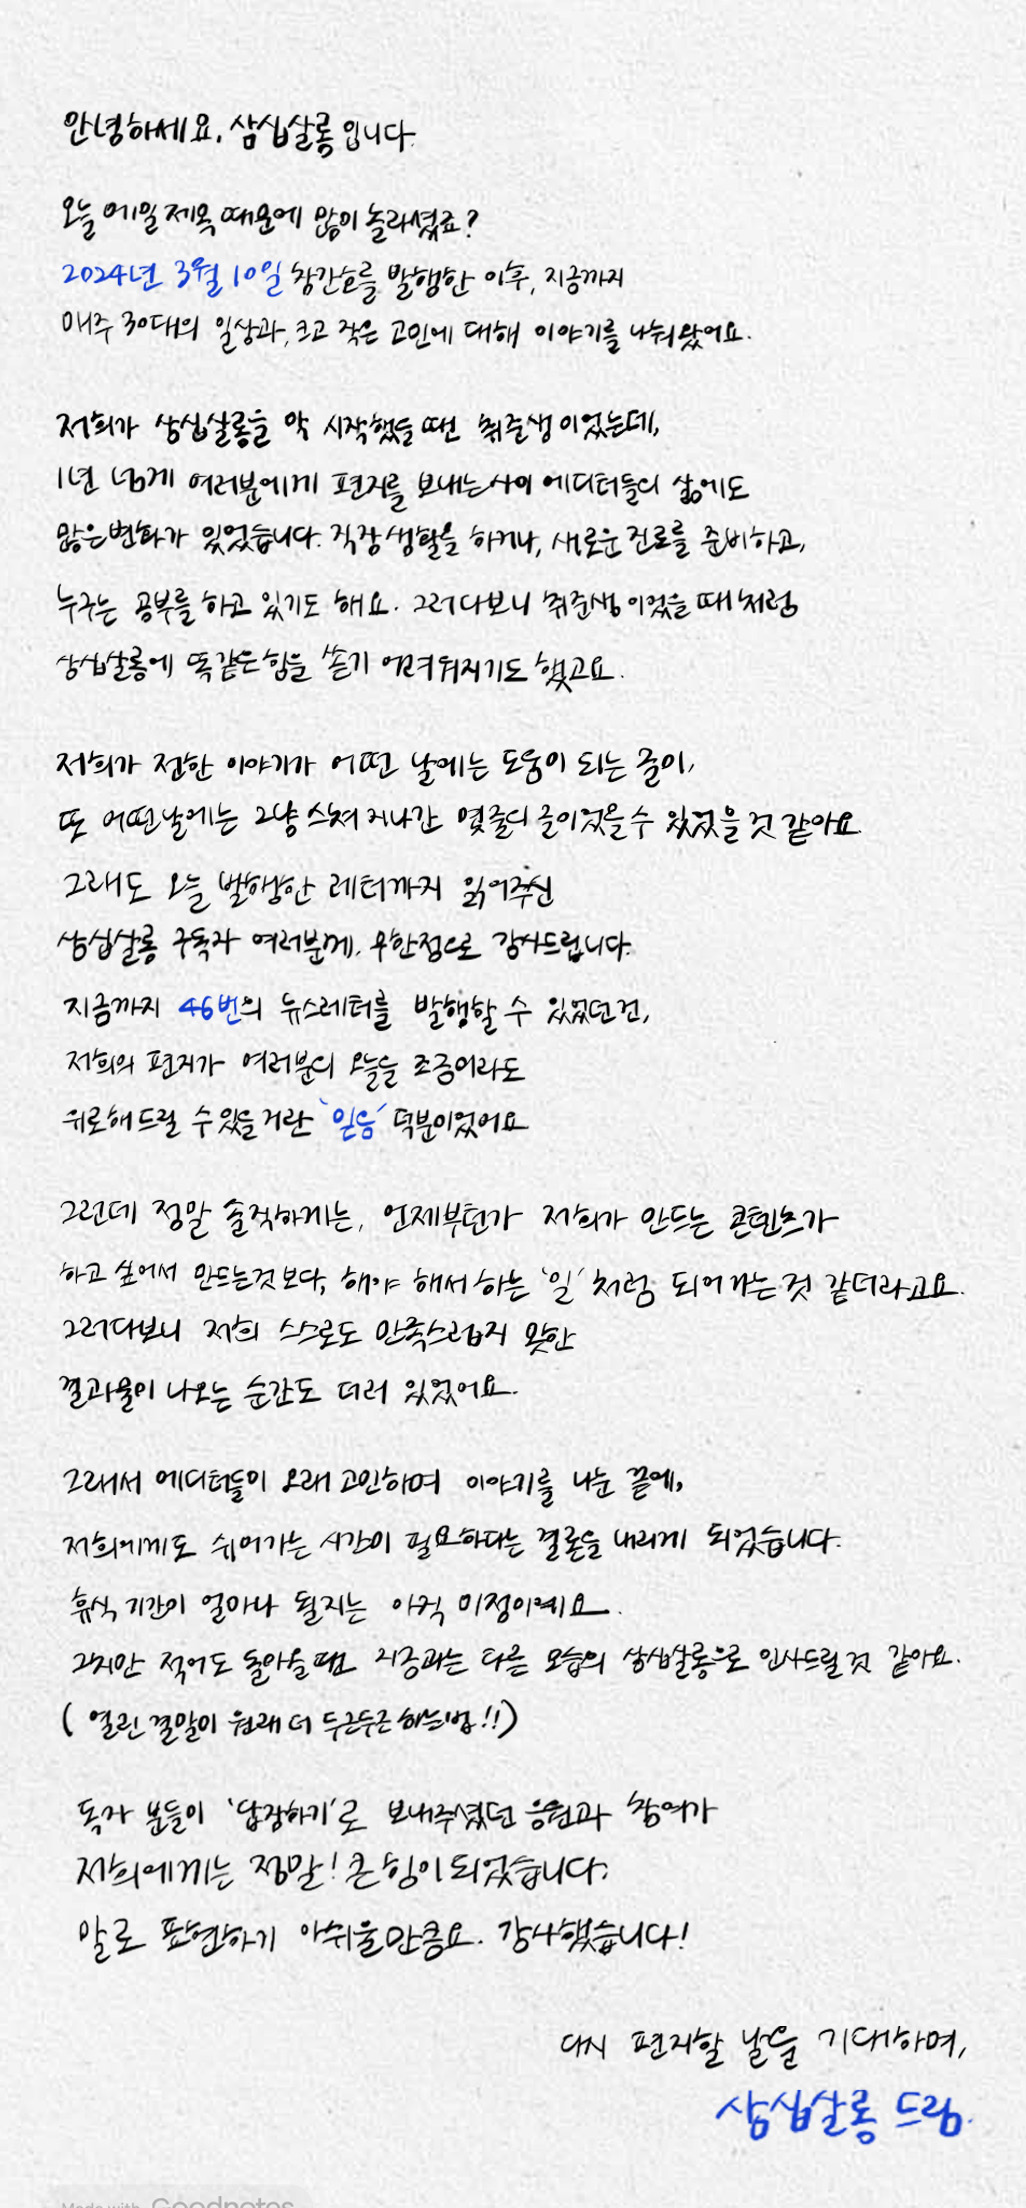 안녕하세요, 삼십살롱입니다.
오늘 메일 제목 때문에 많이 놀라셨죠?
2024년 3월 10일 창간호를 발행한 이후, 지금까지
매주 30대의 일상과, 크고 작은 고민에 대해 이야기를 나눠왔어요.
저희가 삼십살롱을 막 시작했을 땐 취준생이었는데,
1년 넘게 여러분에게 편지를 보내는 사이 에디터들의 삶에도
많은 변화가 있었습니다. 직장생활을 하거나, 새로운 진로를 준비하고,
누구는 공부를 하고 있기도 해요. 그러다보니 취준생이었을 때처럼
삼십살롱에 똑같은 힘을 쏟기 어려워지기도 했고요.
저희가 전한 이야기가 어떤 날에는 도움이 되는 글이,
또 어떤날에는 그냥 스쳐 지나간 몇줄의 글이었을 수 있었을 것 같아요.
그래도 오늘 발행한 레터까지 읽어주신
삼십살롱 구독자 여러분께. 무한정으로 감사드립니다.
지금까지 46번의 뉴스레터를 발행할 수 있었던 건,
저희의 편지가 여러분의 오늘을 조금이라도
위로해드릴 수 있을거란 '믿음' 덕분이었어요
그런데 정말 솔직하게는, 언제부턴가 저희가 만드는 콘텐츠가
하고 싶어서 만드는것 보다, 해야 해서 하는 '일' 처럼 되어가는 것 같더라고요.
그러다보니 저희 스스로도 만족스럽지 못한
결과물이 나오는 순간도 더러 있었어요.
그래서 에디터들이 오래 고민하며 이야기를 나눈 끝에,
저희에게도 쉬어가는 시간이 필요하다는 결론을 내리게 되었습니다.
휴식 기간이 얼마나 될지는 아직 미정이에요.
그치만 적어도 돌아올 땐 지금과는 다른 모습의 삼십살롱으로 인사드릴 것 같아요.
( 열린 결말이 원래 더 두근두근 하는법!!)
독자 분들이 '답장하기'로 보내주셨던 응원과 참여가
저희에게는 정말! 큰 힘이 되었습니다.
말로 표현하기 아쉬울만큼요. 감사했습니다!
다시 편지할 날을 기대하며,
삼십살롱 드림.
Made with Goodnotes